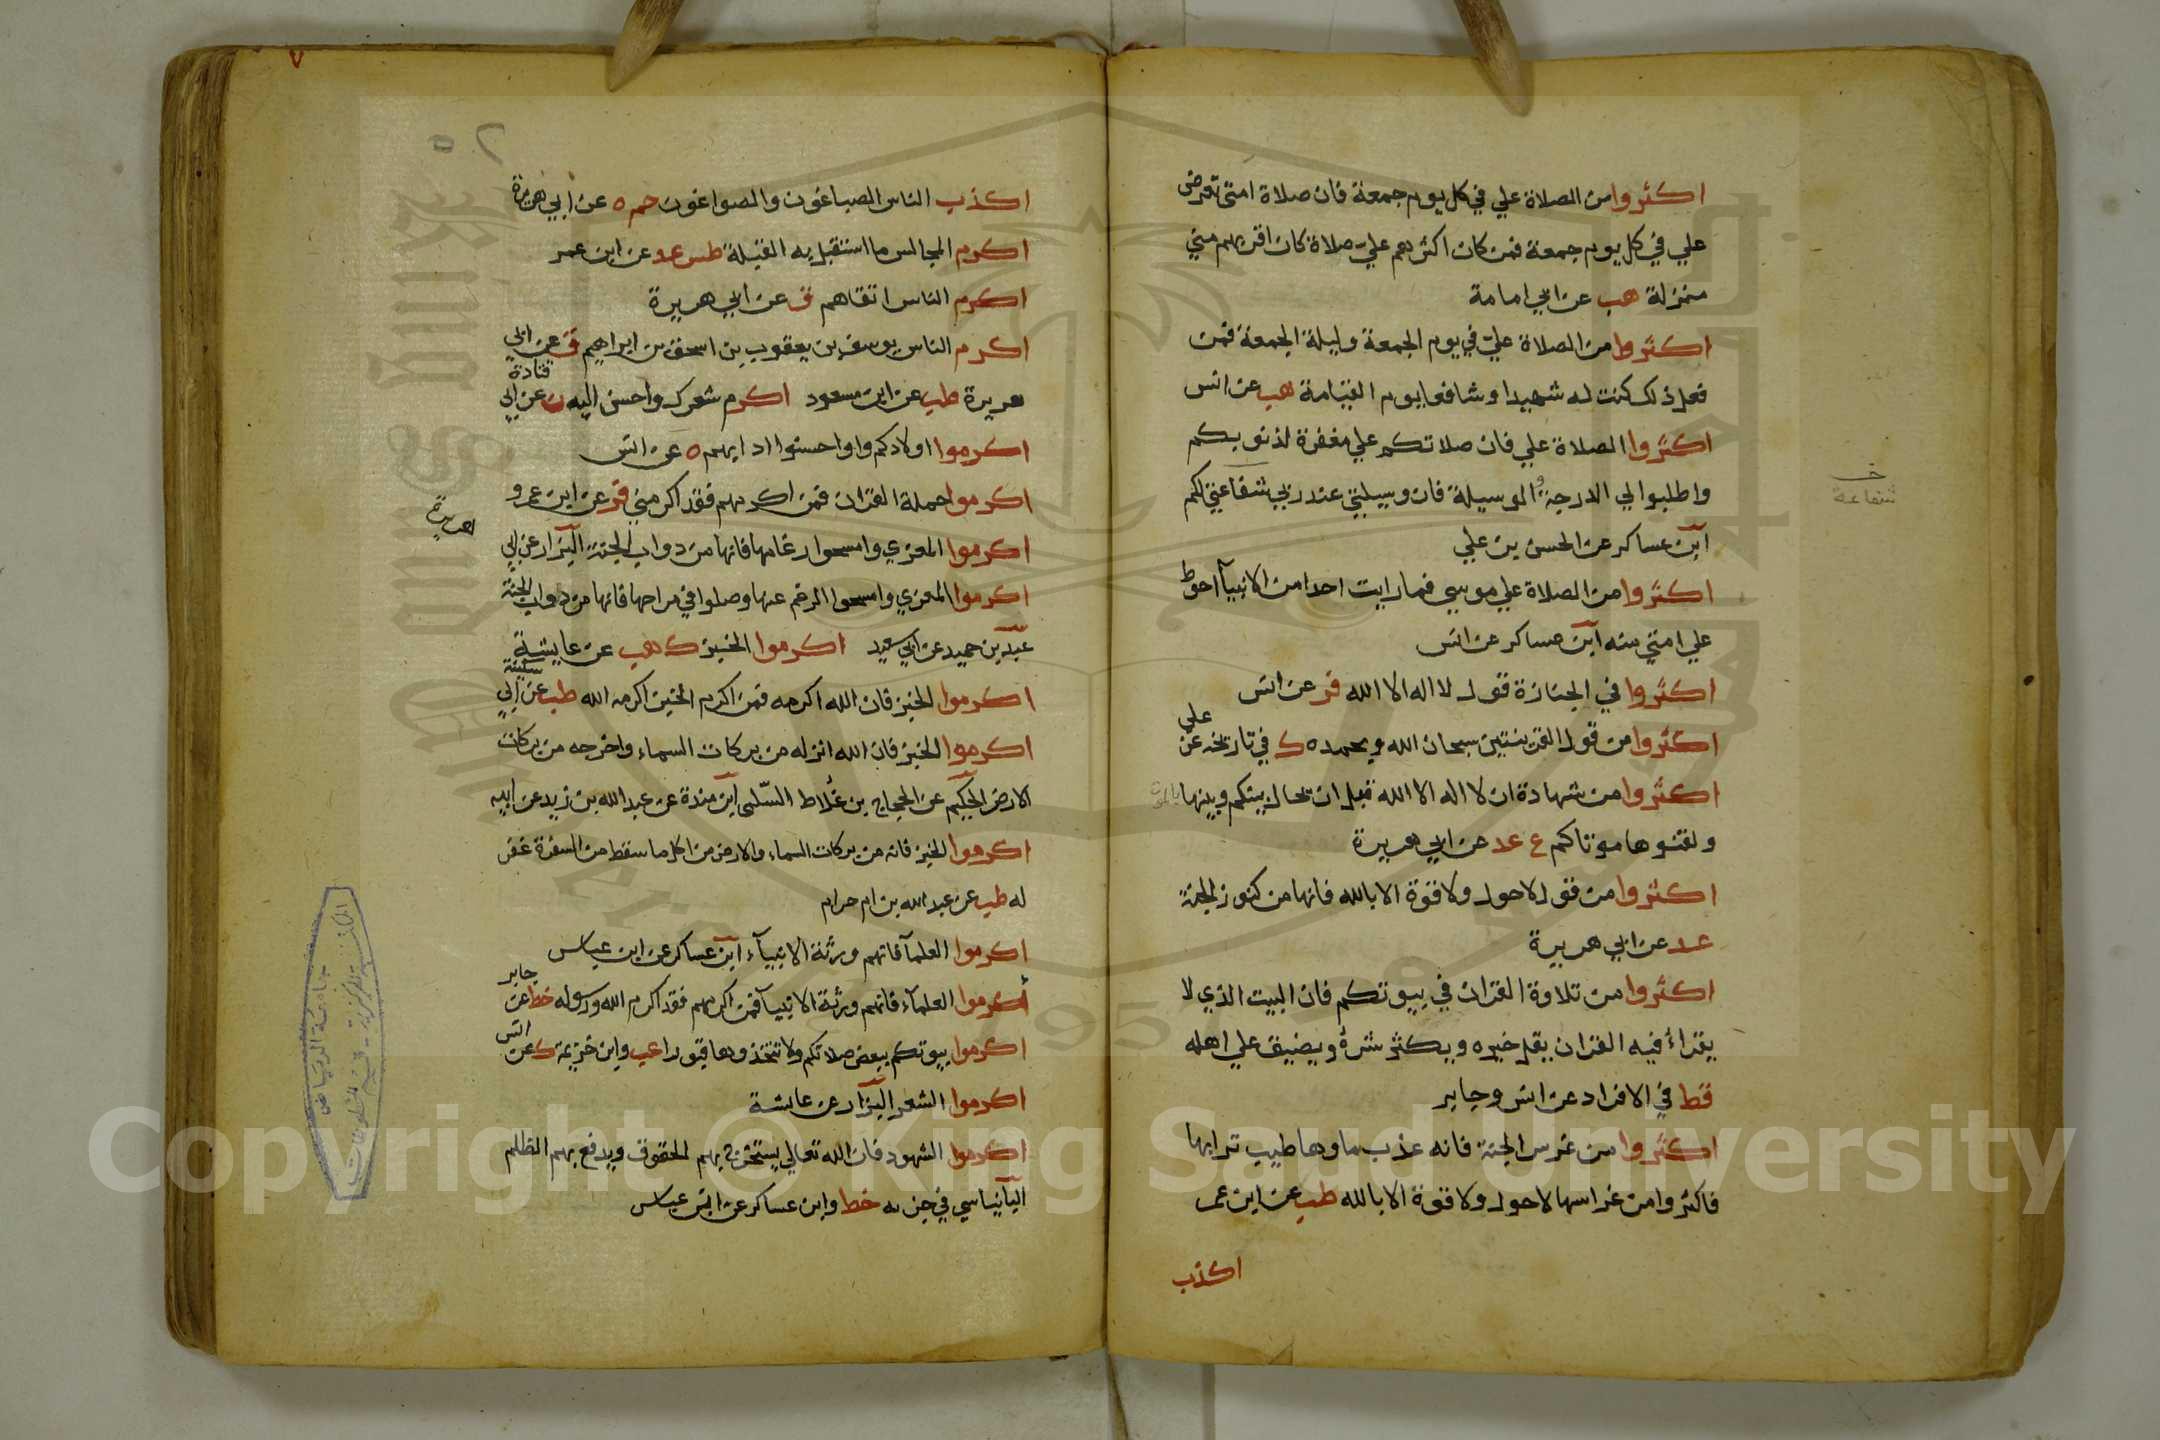 اكثروا من الصلاة علي في كل يوم جمعة فان صلاة امتي تعرض
علي في كل يوم جمعة فمن كان اكثرهم علي صلاة كان اقربهم مني
منزلة هب عن ابي امامة
اكثروا من الصلاة علي في يوم الجمعة وليلة الجمعة فمن
فعل ذلك كنت له شهيدا وشافعا يوم القيامة هب عن انس
اكثروا الصلاة علي فان صلاتكم علي مغفرة لذنوبكم
واطلبوا لي الدرجة والوسيلة فان وسيلتي عند ربي شفاعتي لكم
خ شفاعة
ابن عساكر عن الحسن بن علي
اكثروا من الصلاة علي موسي فما رايت احدا من الانبيآ احوط
علي امتي منه ابن عساكر عن انس
اكثروا في الجنازة قول لا اله الا الله فر عن انس
اكثروا من قول القرينتين سبحان الله وبحمده ك في تاريخه عن علي
اكثروا من شهادة ان لا اله الا الله قبل ان يحال بينكم وبينها
ولقنوها موتاكم ع عد عن ابي هريرة
اكثروا من قول لا حول ولا قوة الا بالله فانها من كنوز الجنة
عد عن ابي هريرة
اكثروا من تلاوة القران في بيوتكم فان البيت الذي لا
يقراء فيه القران يقل خيره ويكثر شره ويضيق علي اهله
قط في الافراد عن انس وجابر
اكثروا من غرس الجنة فانه عذب ماوها طيب ترابها
فاكثروا من غراسها لا حول ولا قوة الا بالله طب عن ابن عمر
اكذب
٧
٥٢
اكذب الناس الصباغون والصواغون حم ه عن ابي هريرة
اكرم المجالس ما استقبل به القبلة طس عد عن ابن عمر
اكرم الناس اتقاهم ق عن ابي هريرة
اكرم الناس يوسف بن يعقوب بن اسحق بن ابراهيم ق عن ابي
هريرة طب عن ابن مسعود اكرم شعرك واحسن اليه ن عن ابي قتادة
اكرموا اولادكم واحسنوا ادابهم ه عن انس
اكرموا حملة القران فمن اكرمهم فقد اكرمني فر عن ابن عمرو
اكرموا المعزي وامسحوا رغامها فانها من دواب الجنة البزار عن ابي هريرة
اكرموا المعزي وامسحوا الرغم عنها وصلوا في مراحها فانها من دواب الجنة
عبد بن حميد عن ابي سعيد اكرموا الخبز ك هب عن عايشة
اكرموا الخبز فان الله اكرمه فمن اكرم الخبز اكرمه الله طب عن ابي سكينة
اكرموا الخبز فان الله انزله من بركات السماء واخرجه من بركات
الارض الحكيم عن الحجاج بن علاط السلمي ابن مندة عن عبد الله بن زيد عن ابيه
اكرموا الخبز فانه من بركات السماء والارض من اكل ما سقط من السفرة غفر
له طب عن عبد الله بن ام حرام
اكرموا العلمآ فانهم ورثة الانبيآء ابن عساكر عن ابن عباس
اكرموا العلمآء فانهم ورثة الانبيآ فمن اكرمهم فقد اكرم الله ورسوله خط عن جابر
اكرموا بيوتكم ببعض صلاتكم ولا تتخذوها قبورا عب وابن خزيمة ك عن انس
اكرموا الشعر البزار عن عايشة
اكرموا الشهود فان الله تعالي يستخرج بهم الحقوق ويدفع بهم الظلم
البانياسي في جزءه خط وابن عساكر عن ابن عباس
جامعة الرياض
Copyright © King Saud University